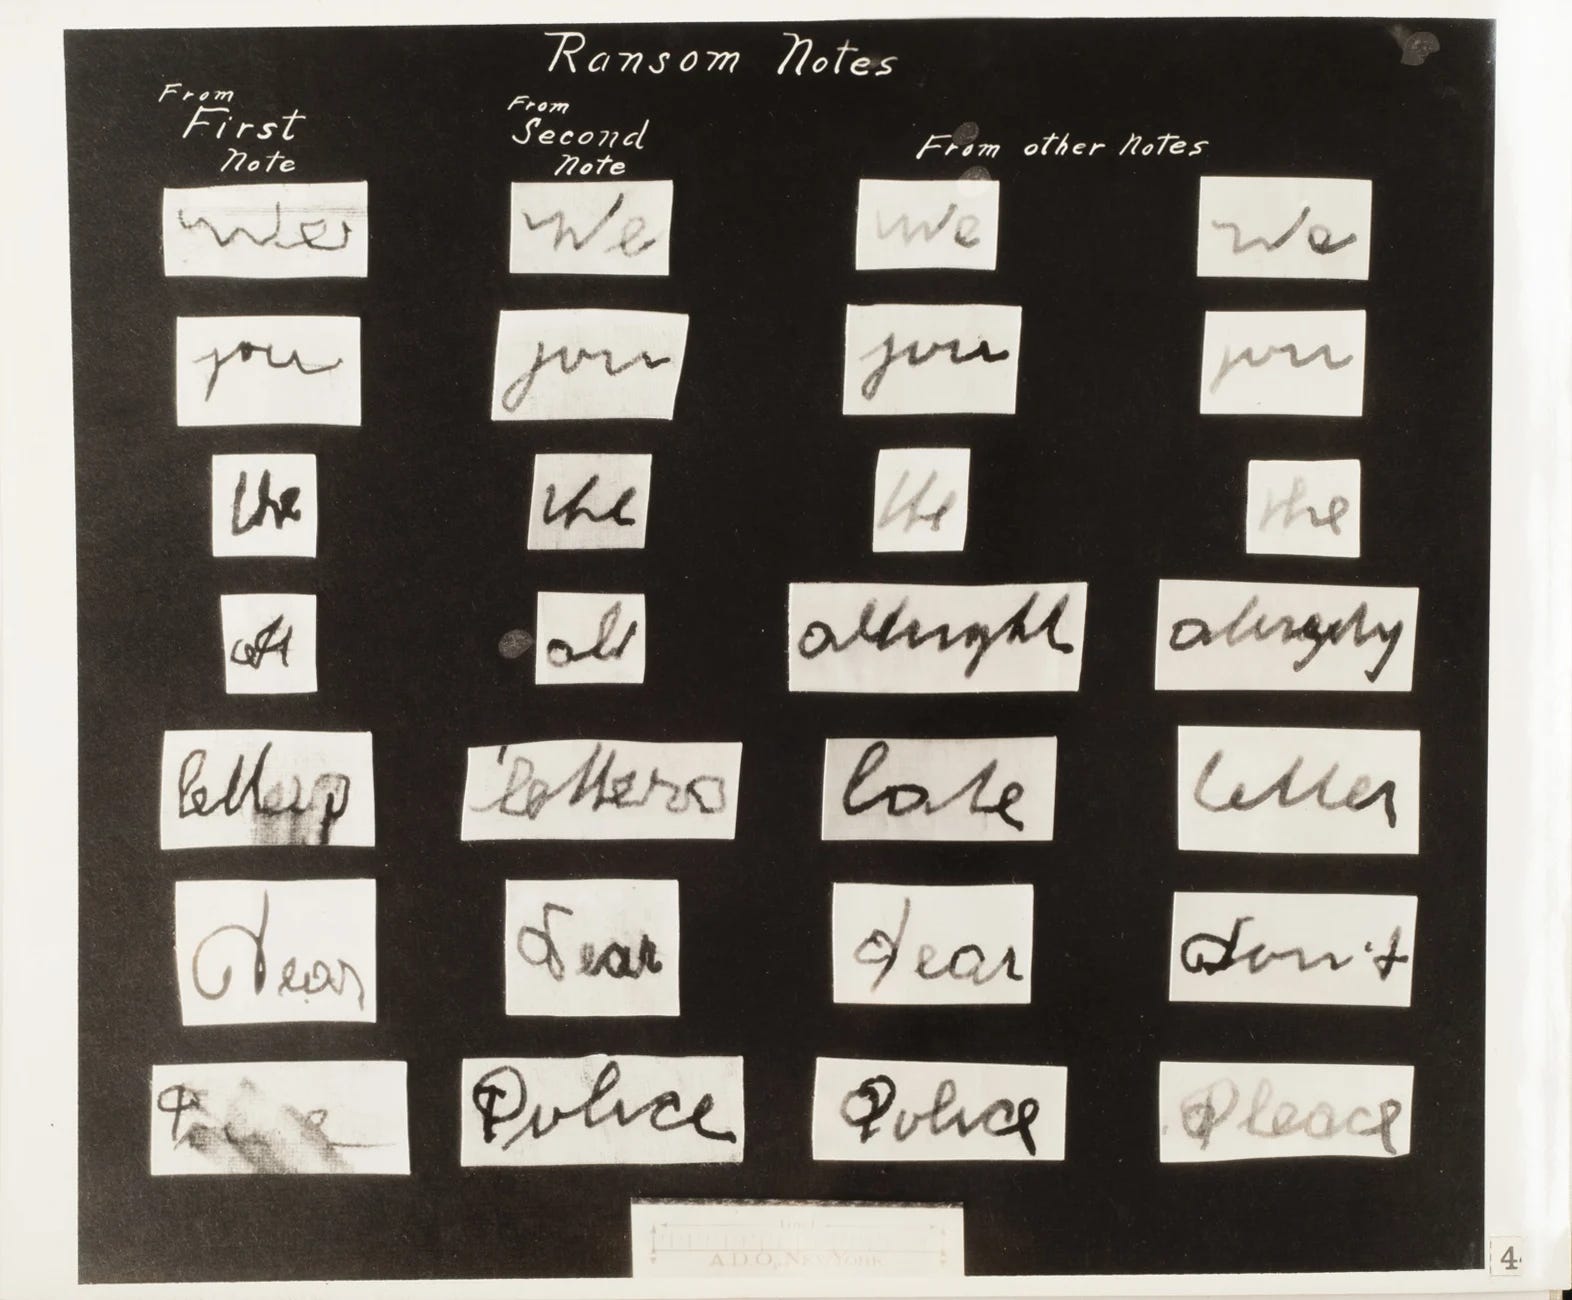 Ransom Notes
From First Note
From Second Note
From other Notes
We we we
you you you you
the the the the
at all allright
letters late letter
Dear Dear Dear Don't
Police Police Pleace
1 Inch
A.D.O., New York
4